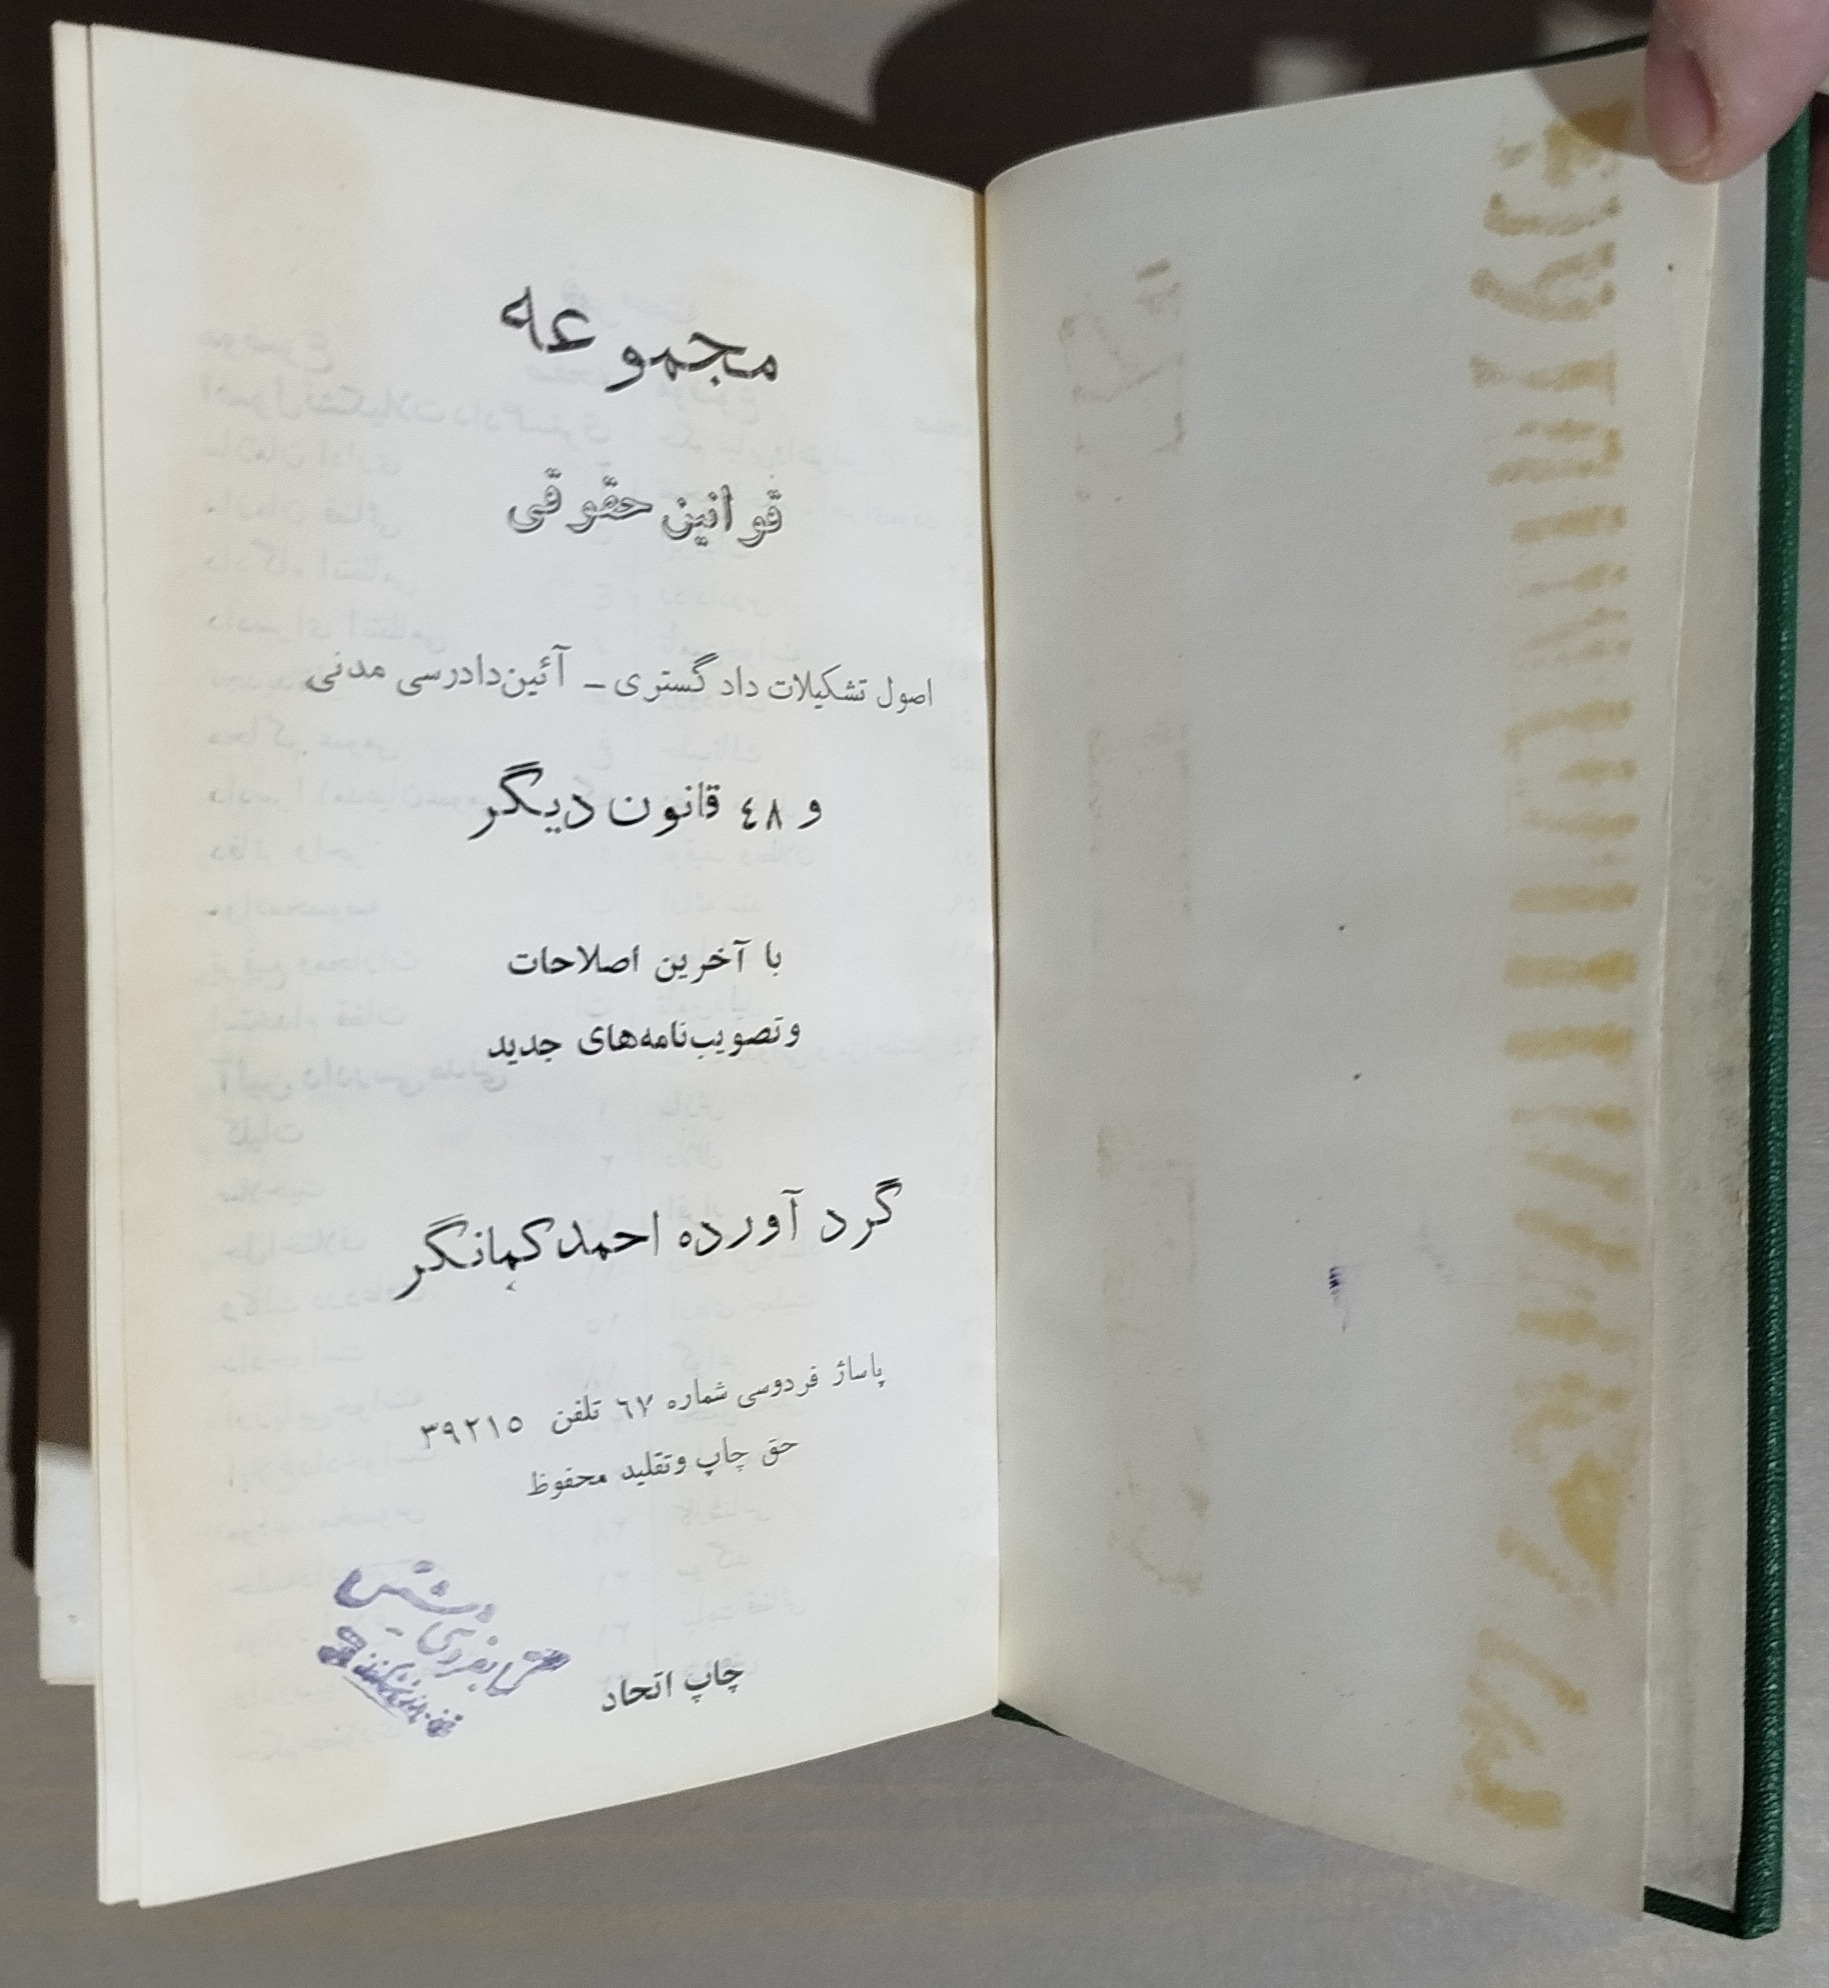 مجموعه
قوانین حقوقی
اصول تشکیلات دادگستری ـ آئین‌دادرسی مدنی
و ٤٨ قانون دیگر
با آخرین اصلاحات
وتصویب‌نامه‌های جدید
گرد آورده احمد کمانگر
پاساژ فردوسی شماره ٦٧ تلفن ٣٩٢١٥
حق چاپ وتقلید محفوظ
چاپ اتحاد